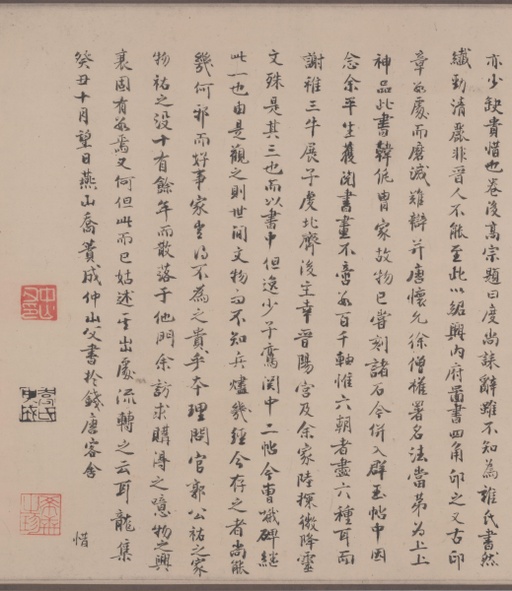 亦少缺貴惜也卷後高宗題曰度尚誄辭雖不知為誰氏書然
纖勁清麗非晉人不能至此以紹興內府圖書四角印之又古印
章數處而磨滅難辯并唐懷允徐僧權署名法當第為上上
神品此書韓侂胄家故物已嘗刻諸石今併入群玉帖中因
念余平生獲閱書畫不啻數百千軸惟六朝者盡六種耳而
謝稚三牛展子虔北齊後主幸晉陽宮及余家陸探微降靈
文殊是其三也而以書中但逸少子鸞關中二帖今曹娥碑繼
此一也由是觀之則世間文物不知兵燼幾經今存之者尚能
幾何邪而好事家豈得不為之貴乎本理問官郭公祐之家
物祐之沒十有餘年而散落于他門余訪求購得之噫物之興
衰固有數焉又何但此而已姑述其出處流轉之云耳龍集
癸丑十月望日燕山喬簣成仲山父書於錢唐客舍
惜